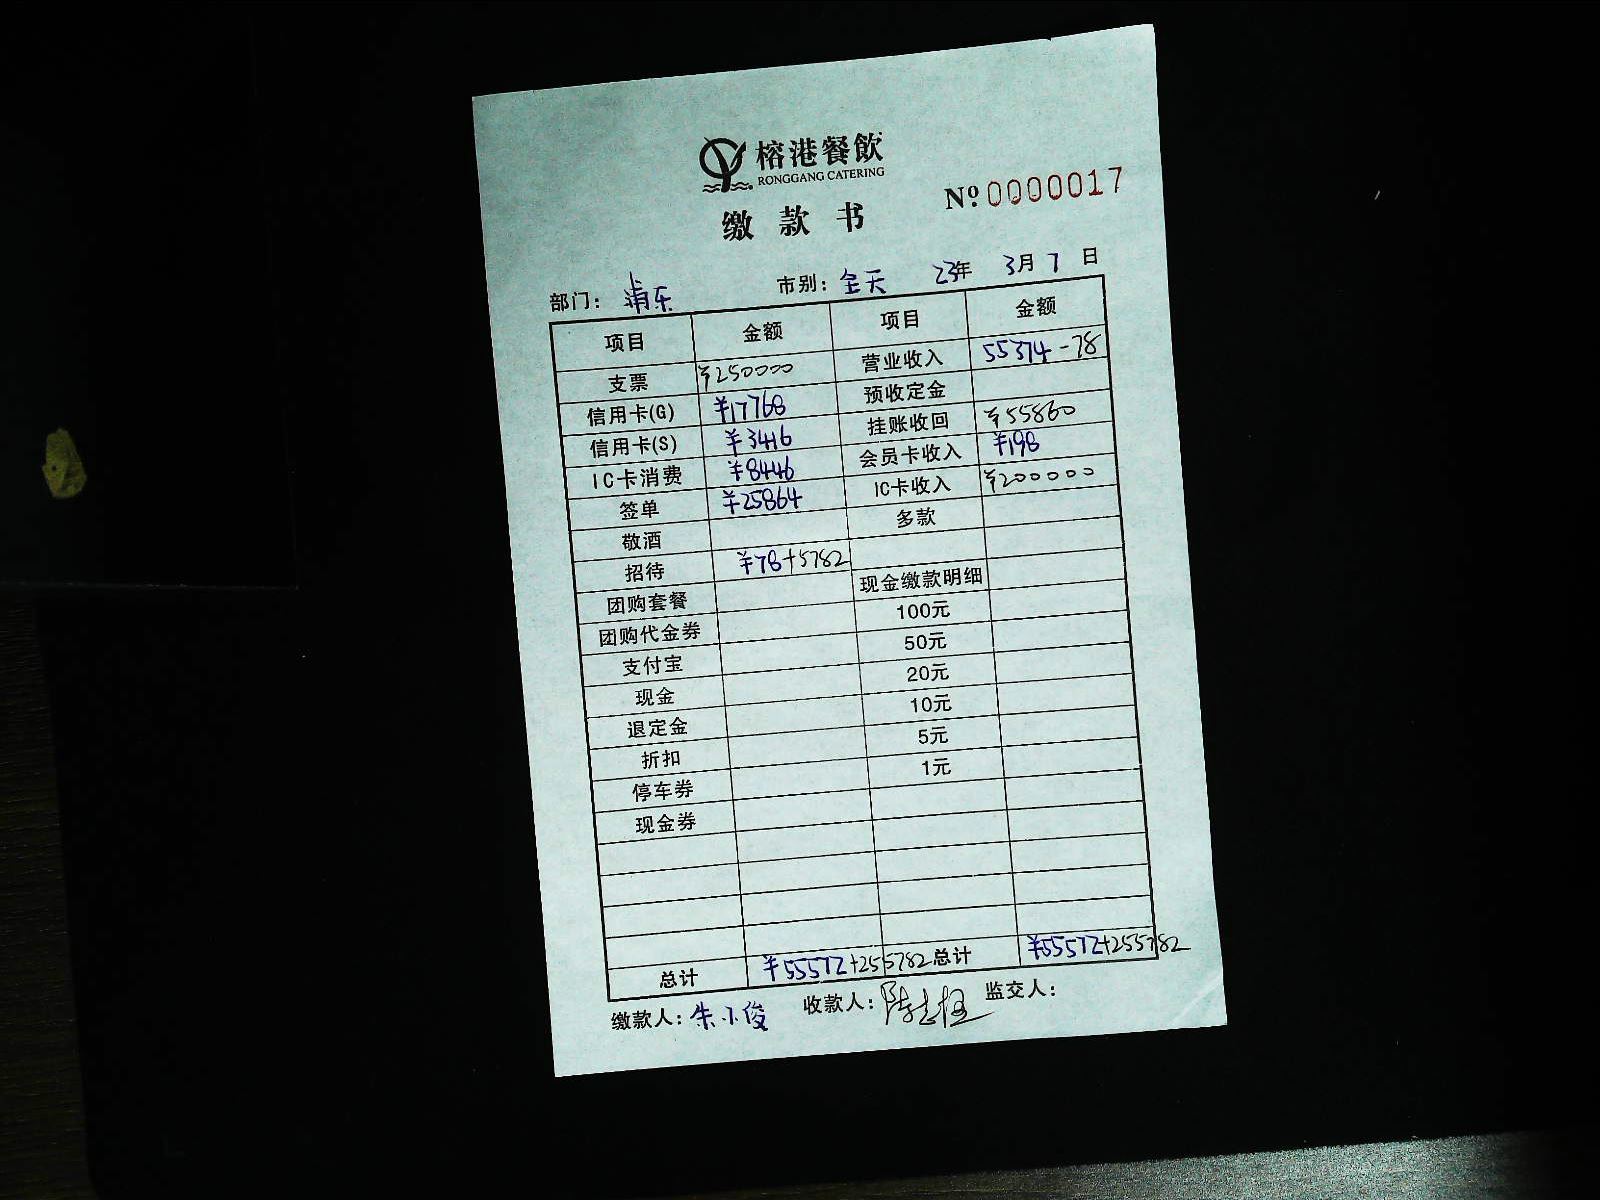 榕港餐飲
RONGGANG CATERING
缴款书
Nº 0000017
部门: 浦东 市别: 全天 23年 3月 7日
项目 金额 项目 金额
支票 ¥250000 营业收入 55374-78
信用卡(G) ¥17768 预收定金
信用卡(S) ¥3416 挂账收回 ¥55860
IC卡消费 ¥8446 会员卡收入 ¥198
签单 ¥25864 IC卡收入 ¥200000
敬酒 多款
招待 ¥78+5782
团购套餐 现金缴款明细
团购代金券 100元
支付宝 50元
现金 20元
退定金 10元
折扣 5元
停车券 1元
现金券
总计 ¥55572+255782 总计 ¥55572+255782
缴款人: 朱小俊 收款人: 监交人: